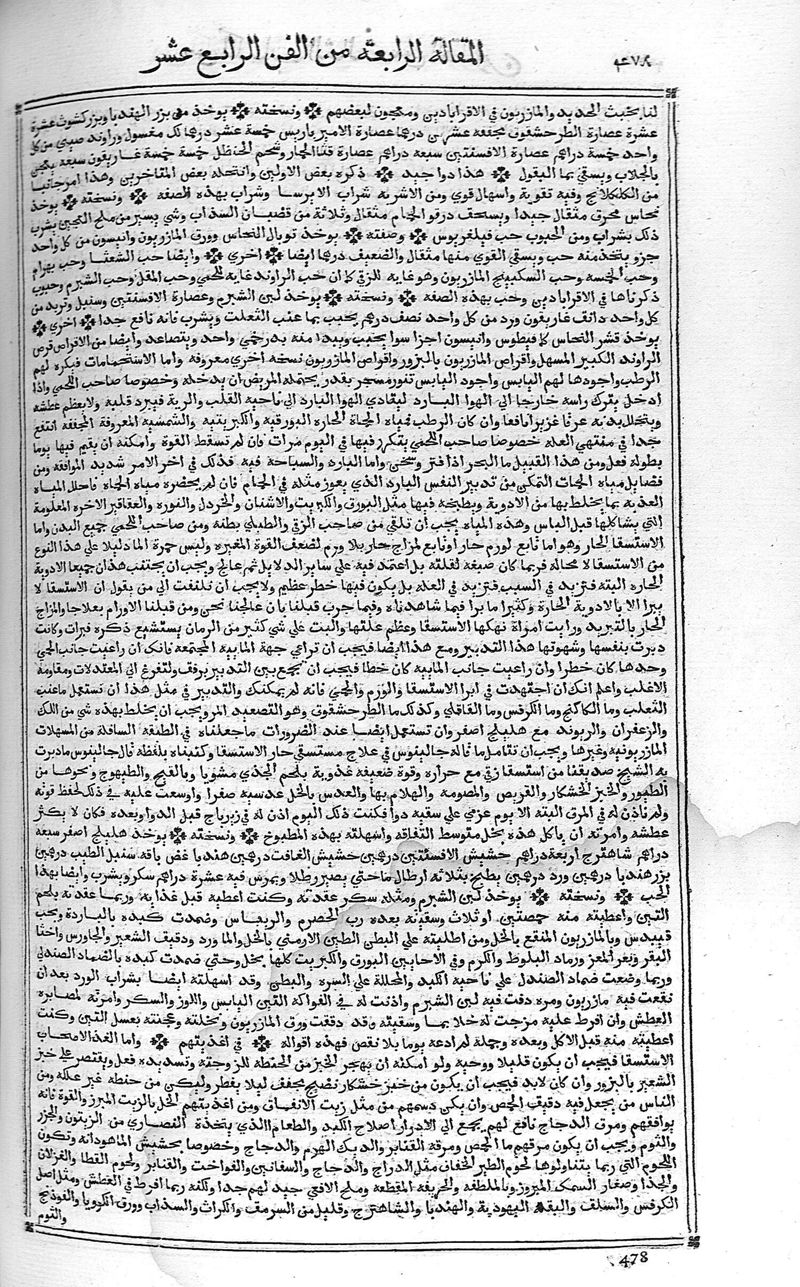 ٤٧٨ المقالة الرابعة من الفن الرابع عشر
لنا بخبث الحديد والمازريون في الاقراباذين ومعجون لبعضهم ونسخته يوخذ من بزر الهنديا وبزر كشوث عشرة
عشرة عصارة الطرحشقوق مجففة عشرين درهما عصارة الاميرباريس خمسة عشر درهما لك مغسول وراوند صيني من كل
واحد خمسة دراهم عصارة الافسنتين سبعة دراهم عصارة قثا الحمار وشحم الحنظل خمسة خمسة غاريقون سبعة يعجن
بالجلاب ويسقي بما البقول هذا دوا جيد ذكره بعض الاولين وانتحله بعض المتاخرين وهذا امر جانبا
من الكلكلانج وفيه تقوية واسهال قوي ومن الاشربة شراب الايرسا وشراب بهذه الصفه ونسخته يوخذ
نحاس محرق مثقال جيدا ويسحف درقو الحمام مثقال وثلاثة من قضبان السذاب وشي يسير من ملح العجين يشرب
ذلك بشراب ومن الحبوب حب فيلغريوس وصفته يوخذ توبال النحاس وورق المازريون وانيسون من كل واحد
جزو يتخذ منه حب ويسقي القوي منها مثقال والضعيف درهما ايضا اخري وايضا حب الشعثا وحب بهرام
وحب الخمسة وحب السكبينج المازريون وهو غايه للزقي كما ان حب الراوند غايه للحمي وحب المقل وحب الشبرم وحبوب
ذكرناها في الاقراباذين وحب بهذه الصفه ونسخته يوخذ لبن الشبرم وعصارة الافسنتين وسنبل وتربد من
كل واحد دانف غاريقون ورد من كل واحد نصف درهم يحبب بما عنب الثعلب ويشرب فانه نافع جدا اخري
يوخذ قشر النحاس كمافيطوس وانيسون اجزا سوا يحبب ويبدا منه بدرخمي واحد ويتصاعد وايضا من الاقراص قرص
الراوند الكبير المسهل واقراص المازريون بالبزور واقواص المازريون نسخه اخري معروفه واما الاستحمامات فيكره لهم
الرطب واجودها لهم اليابس واجود اليابس تنور مسجر بقدر يحتمله المريض ان يدخله وخصوصا صاحب اللحمي واذا
ادخل يترك راسه خارجا الي الهوا البارد ليتادي الهوا البارد الي ناحية القلب والرية فيبرد قلبه ولا يعظم عطشه
ويتحلل بدنه عرقا غزيرا نافعا وان كان الرطب فمياه الحماة الحاره البورقيه والكبريتيه والشمسية المعروفة المجففه انتفع
جدا في منتهي العله خصوصا صاحب اللحمي يتكرر فيها في اليوم مرات فان لم تسقط القوة وامكنه ان يقيم فيها يوما
بطوله فعل ومن هذا القبيل ما البحر اذا فتر وسخن واما البارد والسباحة فيه فذلك في اخر الامر شديد الموافقه ومن
فضايل مياه الحمات التمكن من تدبير النفس البارد الذي يعوز مثله في الحمام فان لم يحضره مياه الحماة فاحلل المياه
العذبه بما يخلط بها من الادوية ويطبخه فيها مثل البورق والكبريت والاشنان والخردل والنوره والعقاقير الاخره المعلومة
التي يشاكلها قبل الياس وهذه المياه يجب ان تلقي من صاحب الزقي والطبلي بطنه ومن صاحب اللحمي جميع البدن واما
الاستسقا الحار وهو اما تابع لورم حار او تابع لمزاج حار بلا ورم لضعف القوة المغيره وليس حمرة الما دليلا علي هذا النوع
من الاستسقا لا محالة فربما كان صبغه لقلته بل اعتمد فيه علي ساير الدلايل ثم عالج ويجب ان يجتنب هذان جميعا الادوية
الحاره البته فتزيد في السبب فتزيد في العله بل يكون فيها خطر عظيم ولا يجب ان تلتفت الي من يقول ان الاستسقا لا
يبرا الا بالادوية الحارة وكثيرا ما برا فيما شاهدناه وفيما جرب قبلنا بان عالجنا نحن ومن قبلنا الاورام بعلاجها والمزاج
الحار بالتبريد ورايت امراة نهكها الاستسقا وعظم علتها والبت علي شي كثير من الرمان يستشبع ذكره فبرات وكانت
دبرت بنفسها وشهوتها هذا التدبير ومع هذا ايضا فيجب ان تراعي جهة المايية المجتمعة فانك ان راعيت جانب الحمي
وحدها كان خطرا وان راعيت جانب المايية كان خطا فيجب ان تجمع بين التدبير برفف وتفرغ الي المعتدلات ومقاومة
الاغلب واعلم انك ان اجتهدت في ابرا الاستسقا والورم والحمي فانه لم يمكنك والتدبير في مثل هذا ان تستعمل ما عنب
الثعلب وما الكاكنج وما الكرفس وما القاقلي وكذلك ما الطرحشقوق وهو التصعيد المر ويجب ان يخلط بهذه شي من اللك
والزعفران والريوند مع هليلج اصفر وان تستعمل ايضا عند الضرورات ما جعلناه في الطبقه السافلة من المسهلات
المازريونيه وغيرها ويجب ان تتامل ما قاله جالينوس في علاج مستسقي حار الاستسقا وكتبناه بلفظه قال جالينوس ما دبرت
به الشيخ صديقنا من استسقا زقي مع حراره وقوة ضعيفه غذوته بلحم الجدي مشويا وبالقبج والطيهوج ونحوها من
الطيور والخبز الخشكار والقريص والمصوص والهلام بها والعدس بالخل عدسيه صفرا واوسعت عليه في ذلك لحفظ قوته
ولم ناذن له في المرق البته الا يوم عزمي علي سقيه دوا فكنت ذلك اليوم اذن له في زيرباج قبل الدوا وبعده فكان لا يكثر
عطشه وامرته ان ياكل هذه بخل متوسط الثقافه واسهلته بهذه المطبوخ ونسخته يوخذ هليلج اصفر سبعة
دراهم شاهترج اربعة دراهم حشيش الافسنتين درهمين حشيش الغافت درهمين هنديا غض باقه سنبل الطيب درهمين
بزر هنديا درهمين ورد درهمين يطبخ بثلاثه ارطال ما حتي يصير رطلا ويمرس فيه عشرة دراهم سكر ويشرب وايضا بهذا
الحب ونسخته يوخذ لبن الشبرم ومثله سكر عقدته وكنت اعطيه قبل غذايه وربما عقدته بلحم
التين واعطيته منه حمصتين او ثلاث وسقيته بعده رب الحصرم والريباس وضمدت كبده بالباردة وبحب
قبيدس وبالمازريون المنقع بالخل ومن اطليته علي البطن الطين الارمني بالخل والما ورد ودقيق الشعير والجاورس واخثا
البقر وبعر المعز ورماد البلوط والكرم وفي الاحايين البورق والكبريت كلها بخل وحتي ضمدت كبده بالضماد الصندلي
وربما وضعت ضماد الصندل علي ناحية الكبد والمحللة علي السره والبطن وقد اسهلته ايضا بشراب الورد بعد ان
نقعت فيه مازريون ومره دفت فيه لبن الشبرم واذنت له في الفواكه التين اليابس واللوز والسكر وامرته لمصابره
العطش وان افرط عليه مزجت له خلا بما وسقيته وقد دققت ورق المازريون ونخلته وعجنته بعسل التين وكنت
اعطيته منه قبل الاكل وبعده وجملة لم ادعه يوما بلا نقص فهذه اقواله في اغذيتهم واما الغذا لاصحاب
الاستسقا فيجب ان يكون قليلا ووجبه ولو امكنه ان يهجر الخبز من الحنطه للزوجته وتسديده فعل ويقتصر علي خبز
الشعير بالبزور وان كان لابد فيجب ان يكون من خبز خشكار نضيج مجفف ليلا يفطر وليكن من حنطه غير علكه ومن
الناس من يجعل فيه دقيق الحمص وان يكن دسمهم من مثل زيت الانفاق ومن اغذيتهم الخل بالزيت المبرز والقوة فانه
يوافقهم ومرق الدجاج نافع لهم يجمع الي الادرار اصلاح الكبد والطعام الذي يتخذه النصاري من الزيتون والجزر
والثوم ويجب ان يكون مرقهم ما الحمص ومرقة القنابر والديك الهرم والدجاج وخصوصا بحشيش الماهودانه وتكون
اللحوم التي ربما يتناولوها لحوم الطير الخفاف مثل الدراج والدجاج والسفانين والفواخت والقنابر ولحوم القطا والغزلان
والجدا وصغار السمك المبزور وبالملطفه والحريفه المقطعه وملح الافعي جيد لهم جدا ولكنه ربما افرط في العطش ومثل اصل
الكرفس والسلق والبقله اليهودية والهنديا والشاهترج وقليل من السرمف والكراث والسذاب وورق الكرويا والفوذنج
والثوم
478